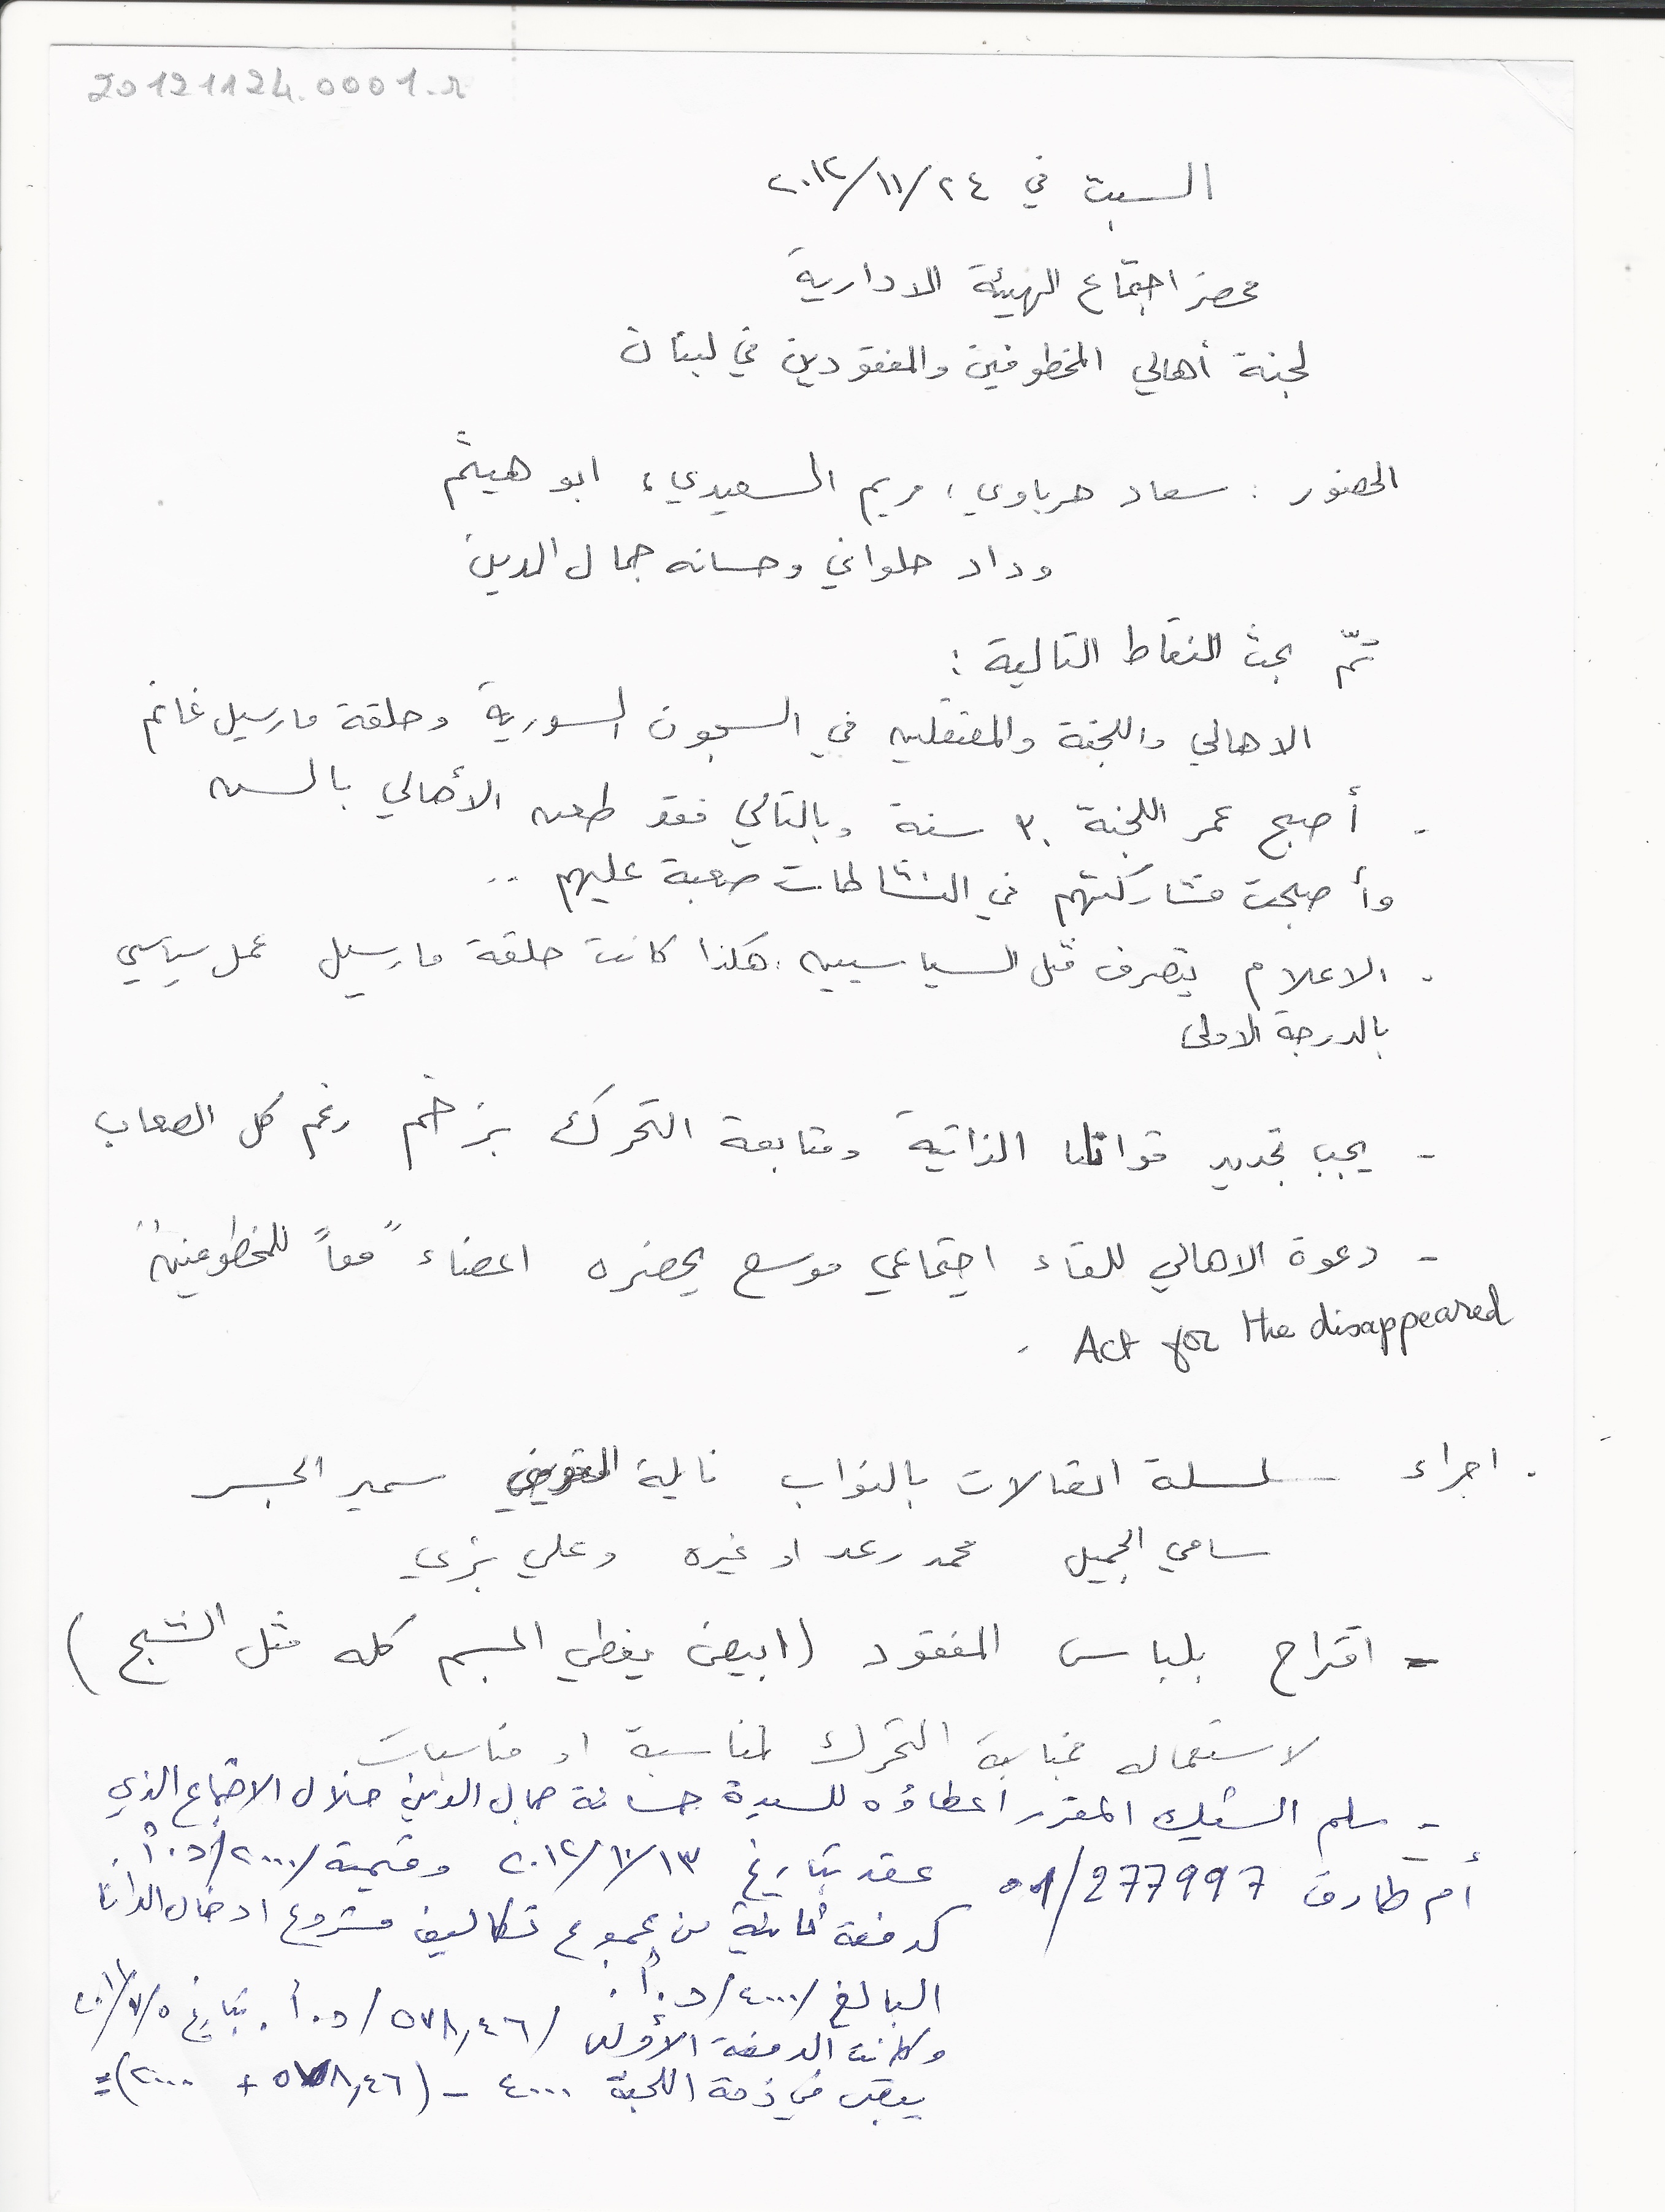 20121124.0001.r
السبت في ٢٤/١١/٢٠١٢
محضر اجتماع الهيئة الادارية
لجنة أهالي المخطوفين والمفقودين في لبنان
الحضور : سعاد هرباوي، مريم السعيدي، ابو هيثم
وداد حلواني وحسانه جمال الدين
تمّ بحث النقاط التالية :
الاهالي واللجنة والمعتقلين في السجون السورية وحلقة مارسيل غانم
- أصبح عمر اللجنة ٣٠ سنة وبالتالي فقد طعن الأهالي بالسن
وأصبحت مشاركتهم في النشاطات صعبة عليهم ..
- الاعلام يتصرف مثل السياسيين. هكذا كانت حلقة مارسيل عمل سياسي
بالدرجة الاولى
- يجب تجديد قوانا الذاتية ومتابعة التحرك بزخم رغم كل الصعاب
- دعوة الاهالي للقاء اجتماعي موسع يحضره اعضاء "معاً للمخطوفين"
Act for the disappeared .
. اجراء سلسلة اتصالات بالنواب نايلة سمير الجسر
سامي الجميل محمد رعد او غيره وعلي بزي
- اقتراح بلباس المفقود (ابيض يغطي الجسم كله مثل الشبح)
لاستعماله التحرك لمناسبة او مناسبات
- سلم الشيك المقرر اعطاؤه للسيدة حسانة جمال الدين خلال الاجتماع الذي
عقد بتاريخ ١٣/١٠/٢٠١٢ وقيمته /٢٠٠٠/د.أ.
أم طارق 01/277997
كدفعة ثانية من مجموع تكاليف مشروع ادخال الداتا
البالغ /٤٠٠٠/د.أ.
وكانت الدفعة الأولى /٥٧٨,٤٦/د.أ. بتاريخ
يبقى في ذمة اللجنة ٤٠٠٠ - (٥٧٨,٤٦ + ٢٠٠٠) =